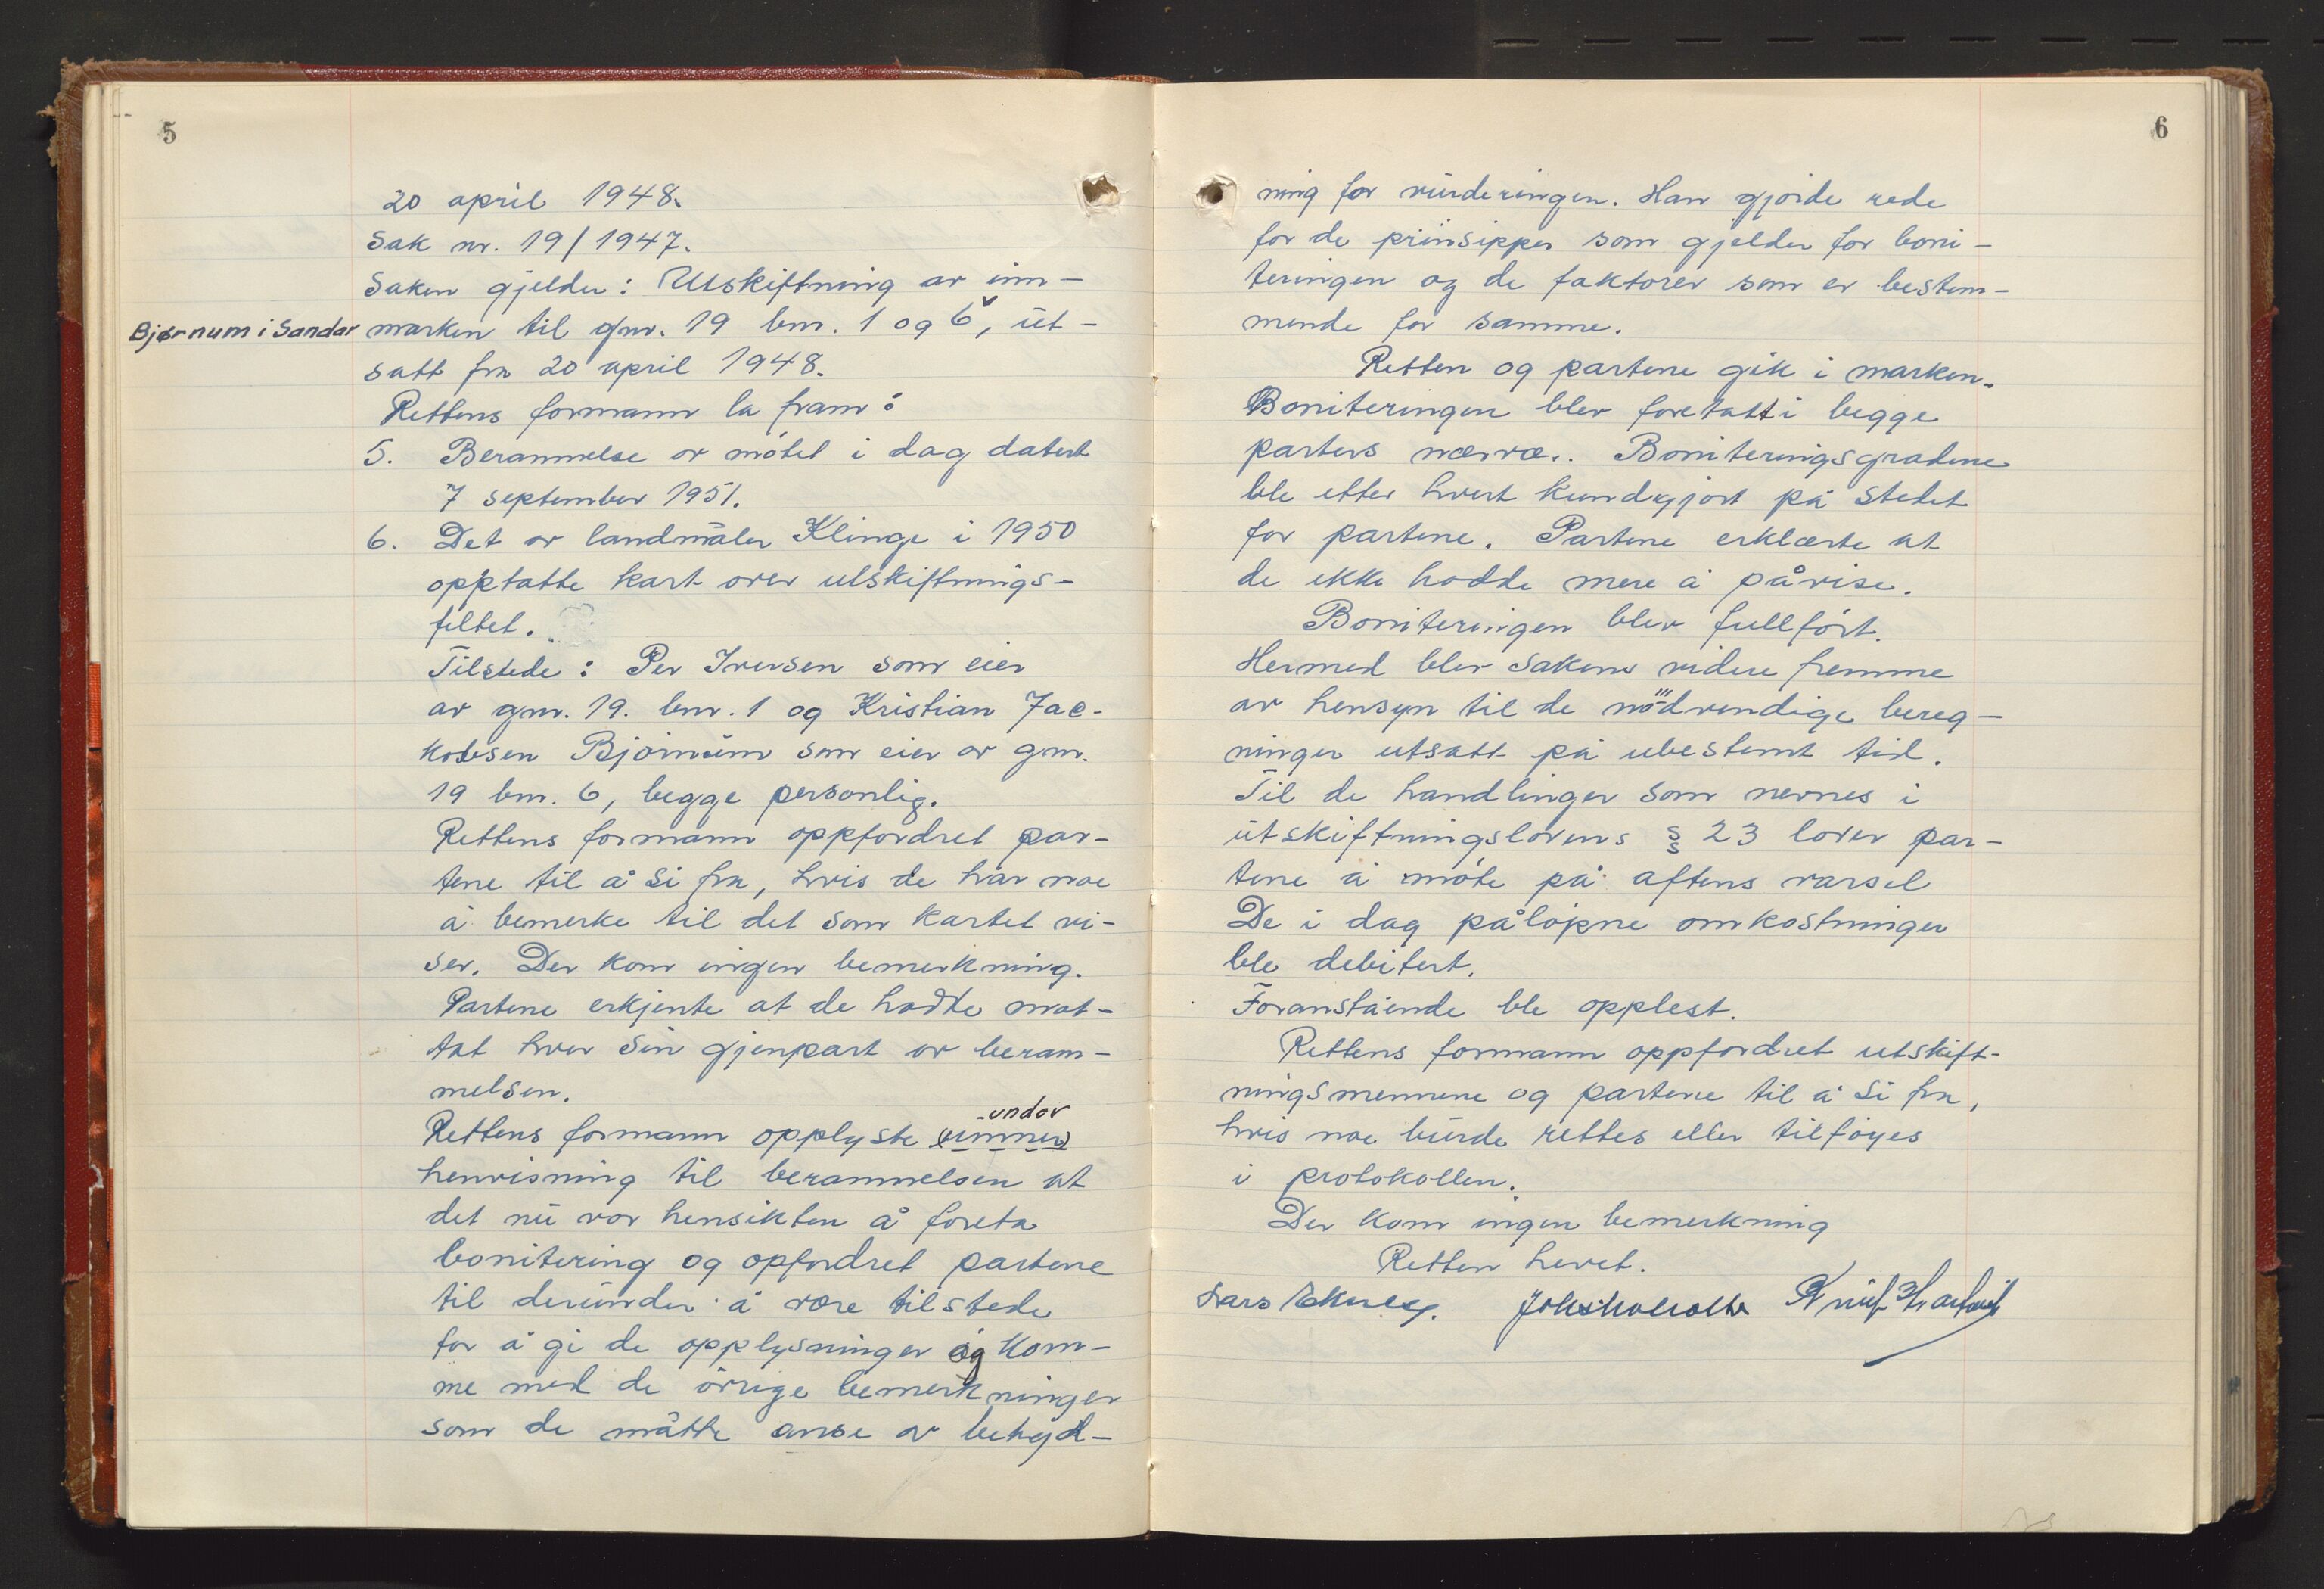 5
20 april 1948.
Sak nr. 19/1947.
Saken gjelder: Utskiftning av inn-
Bjørnum i Sandar
marken til gnr. 19 bnr. 1 og 6, ut-
satt fra 20 april 1948.
Rettens formann la fram:
5. Berammelse av møtet i dag datert
7 september 1951.
6. Det av landmåler Klinge i 1950
opptatte kart over utskiftnings-
feltet.
Tilstede: Per Iversen som eier
av gnr. 19. bnr. 1 og Kristian Jac-
kobsen Bjørnum som eier av gnr.
19 bnr. 6, begge personlig.
Rettens formann oppfordret par-
tene til å si fra, hvis de har noe
å bemerke til det som kartet vi-
ser. Der kom ingen bemerkning.
Partene erkjente at de hadde mot-
tat hver sin gjenpart av beram-
melsen.
under
Rettens formann opplyste (ummer)
henvisning til berammelsen at
det nu var hensikten å foreta
bonitering og opfordret partene
til derunder å være tilstede
for å gi de opplysninger og kom-
me med de øvrige bemerkninger
som de måtte anse av betyd-
6
ning for vurderingen. Han gjorde rede
for de prinsipper som gjelder for boni-
teringen og de faktorer som er bestem-
mende for samme.
Retten og partene gik i marken.
Boniteringen blev foretatt i begge
parters nærvær. Boniteringsgradene
ble etter hvert kundgjort på stedet
for partene. Partene erklærte at
de ikke hadde mere å påvise.
Boniteringen blev fullført.
Hermed blev saken videre fremme
av hensyn til de nødvendige bereg-
ninger utsatt på ubestemt tid.
Til de handlinger som nevnes i
utskiftningslovens § 23 lover par-
tene å møte på aftens varsel
De i dag påløpne omkostninger
ble debitert.
Foranstående ble opplest.
Rettens formann oppfordret utskift-
ningsmennene og partene til å si fra,
hvis noe burde rettes eller tilføyes
i protokollen.
Der kom ingen bemerkning
Retten hevet.
Lars